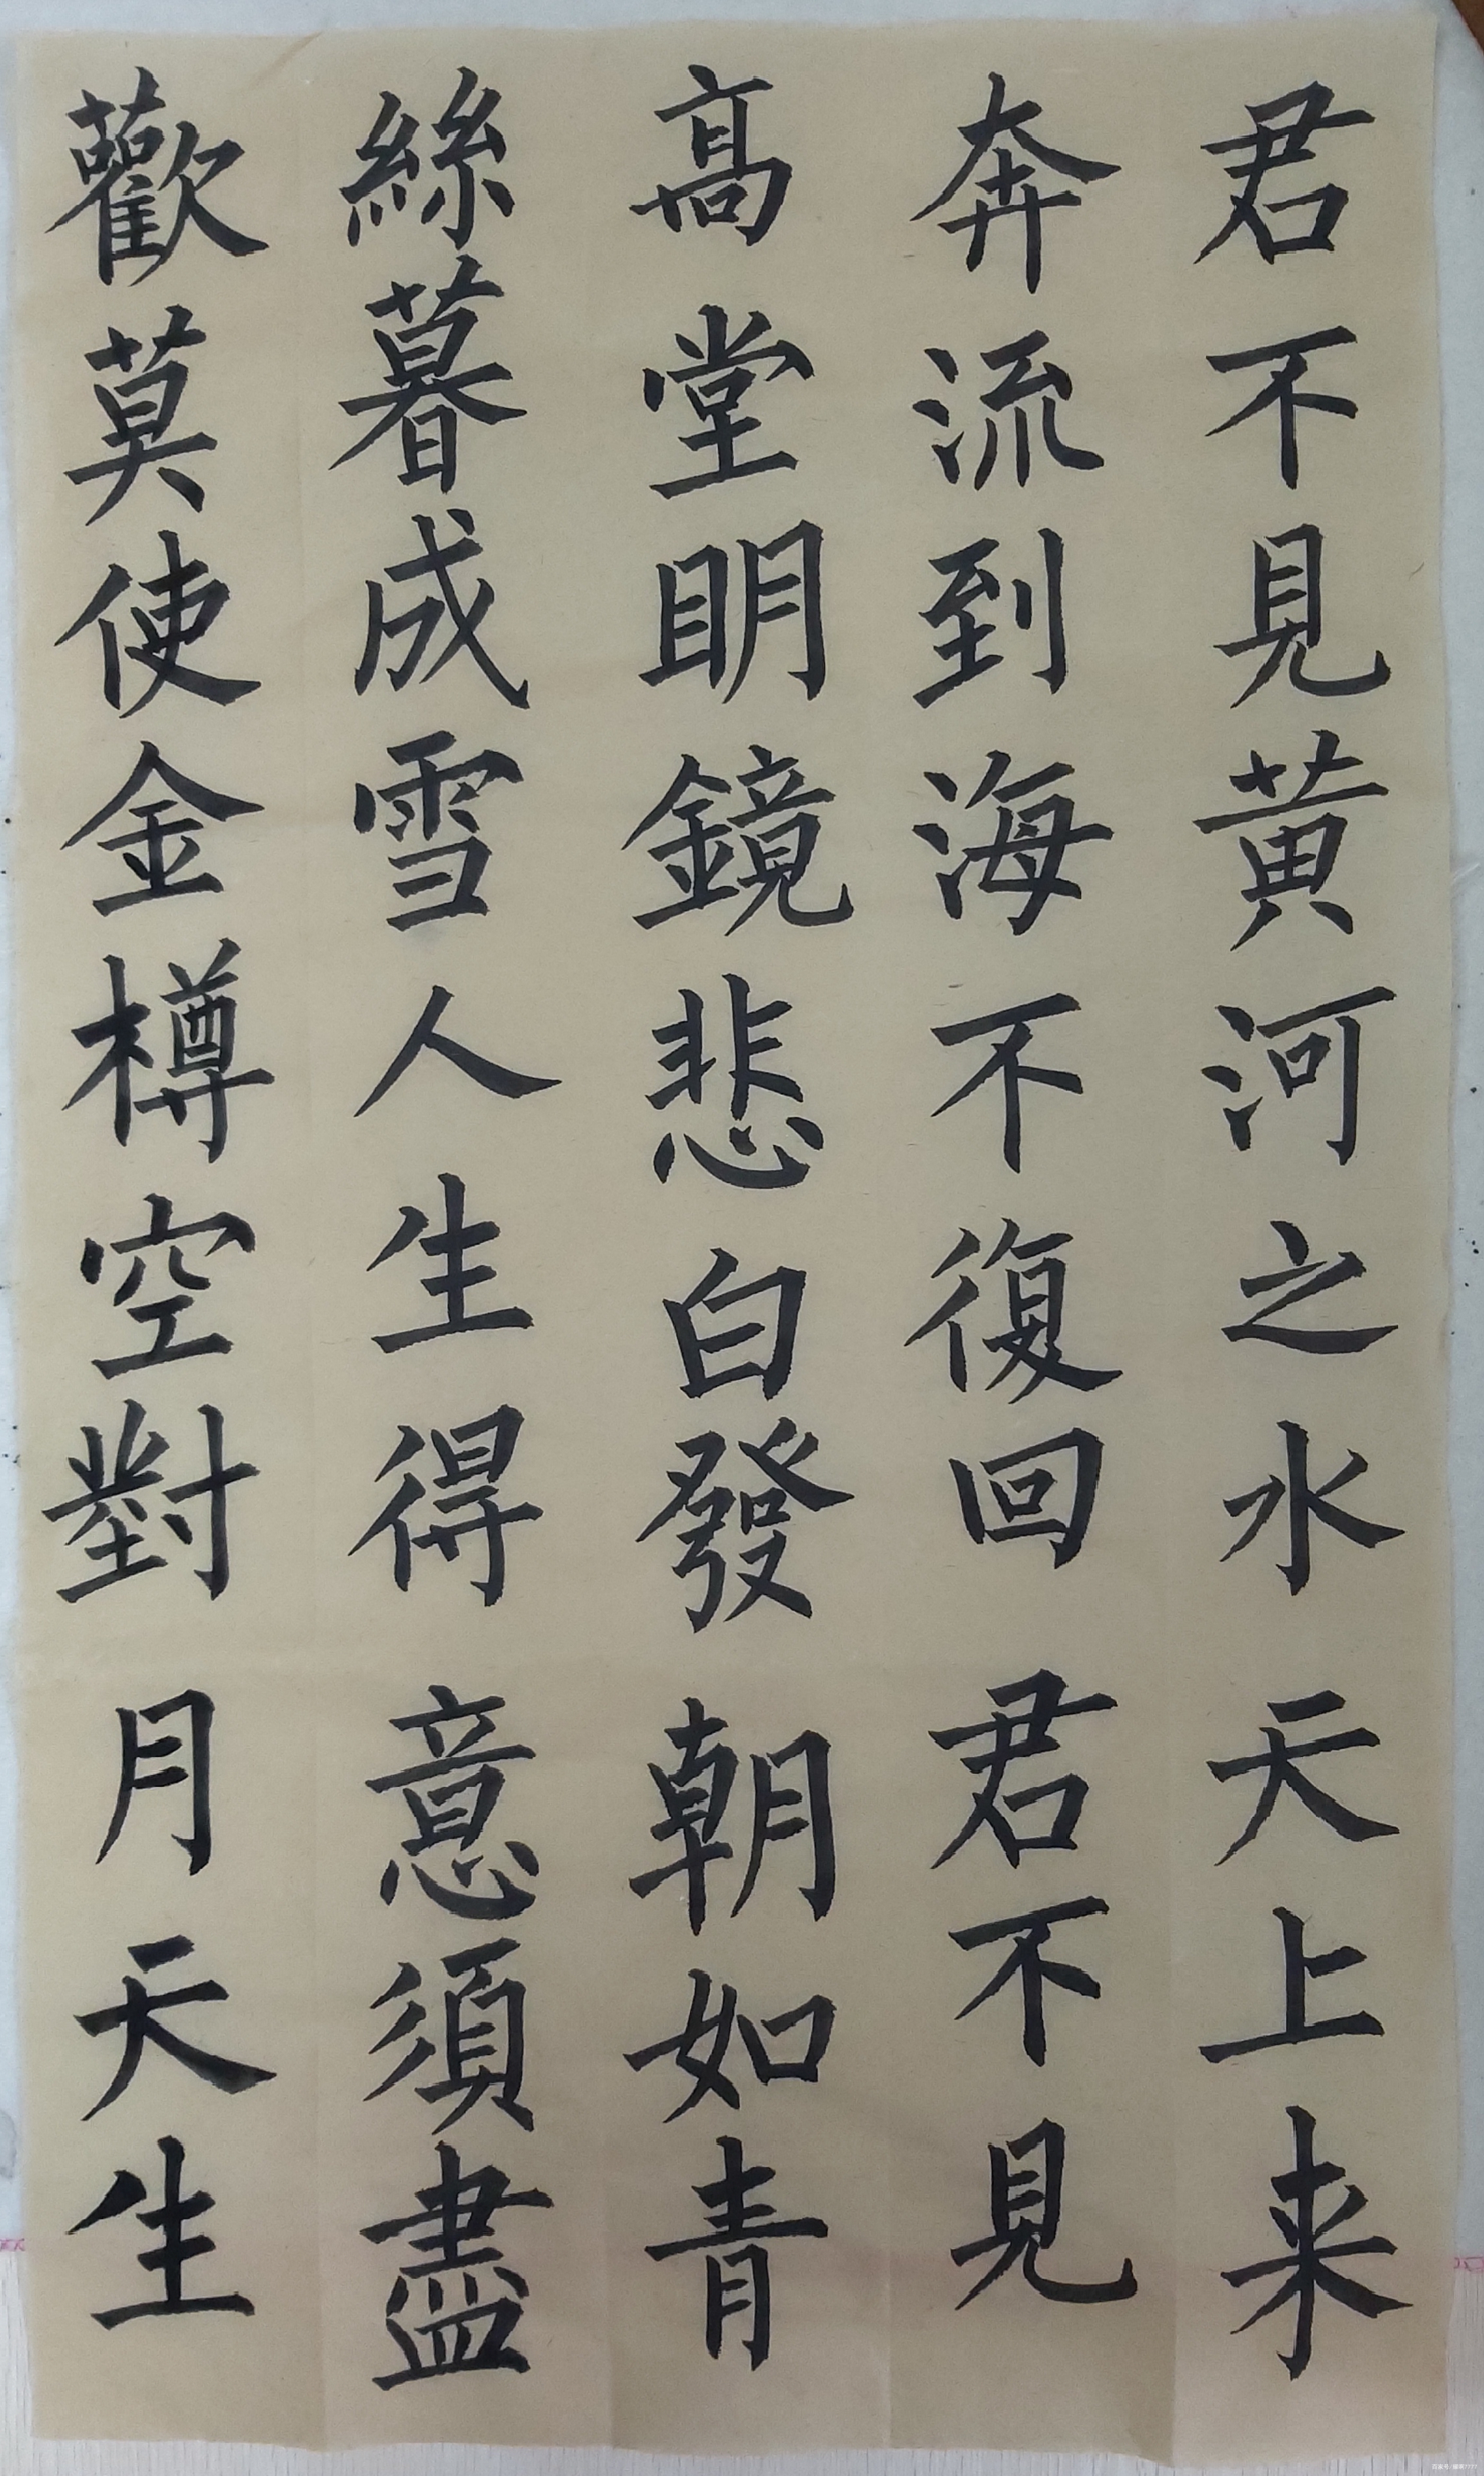 君不見黃河之水天上来
奔流到海不復回君不見
高堂明鏡悲白發朝如青
絲暮成雪人生得意須盡
歡莫使金樽空對月天生